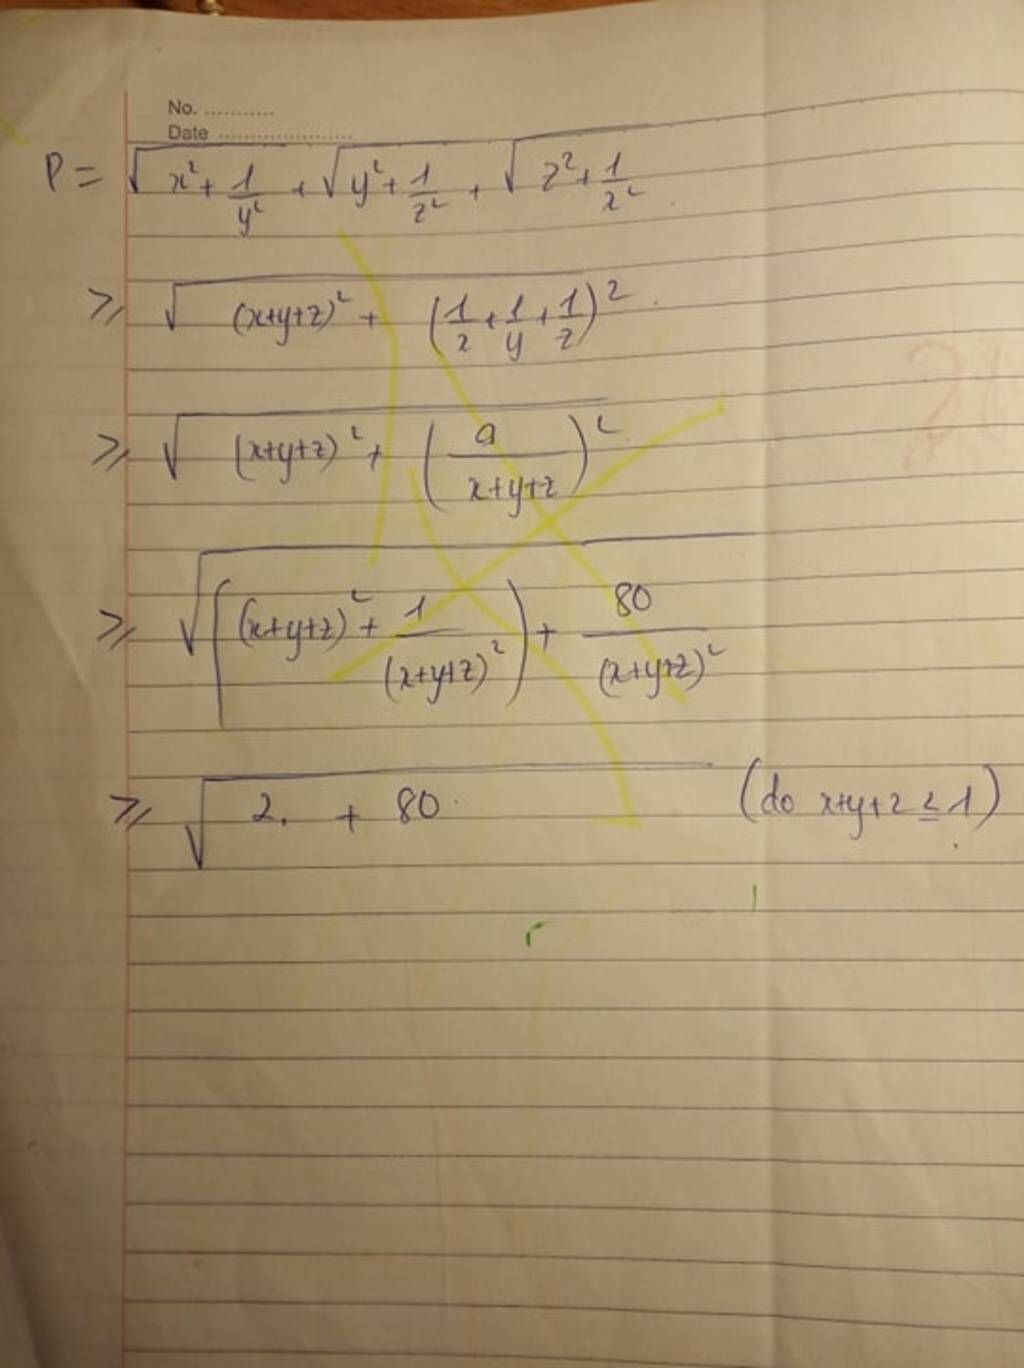 No. ............
Date ......................
P = √(x² + 1/y²) + √(y² + 1/z²) + √(z² + 1/x²)
≥ √((x+y+z)² + (1/x + 1/y + 1/z)²)
≥ √((x+y+z)² + (9/(x+y+z))²)
≥ √(((x+y+z)² + 1/(x+y+z)²) + 80/(x+y+z)²)
≥ √(2. + 80) (do x+y+z ≤ 1)